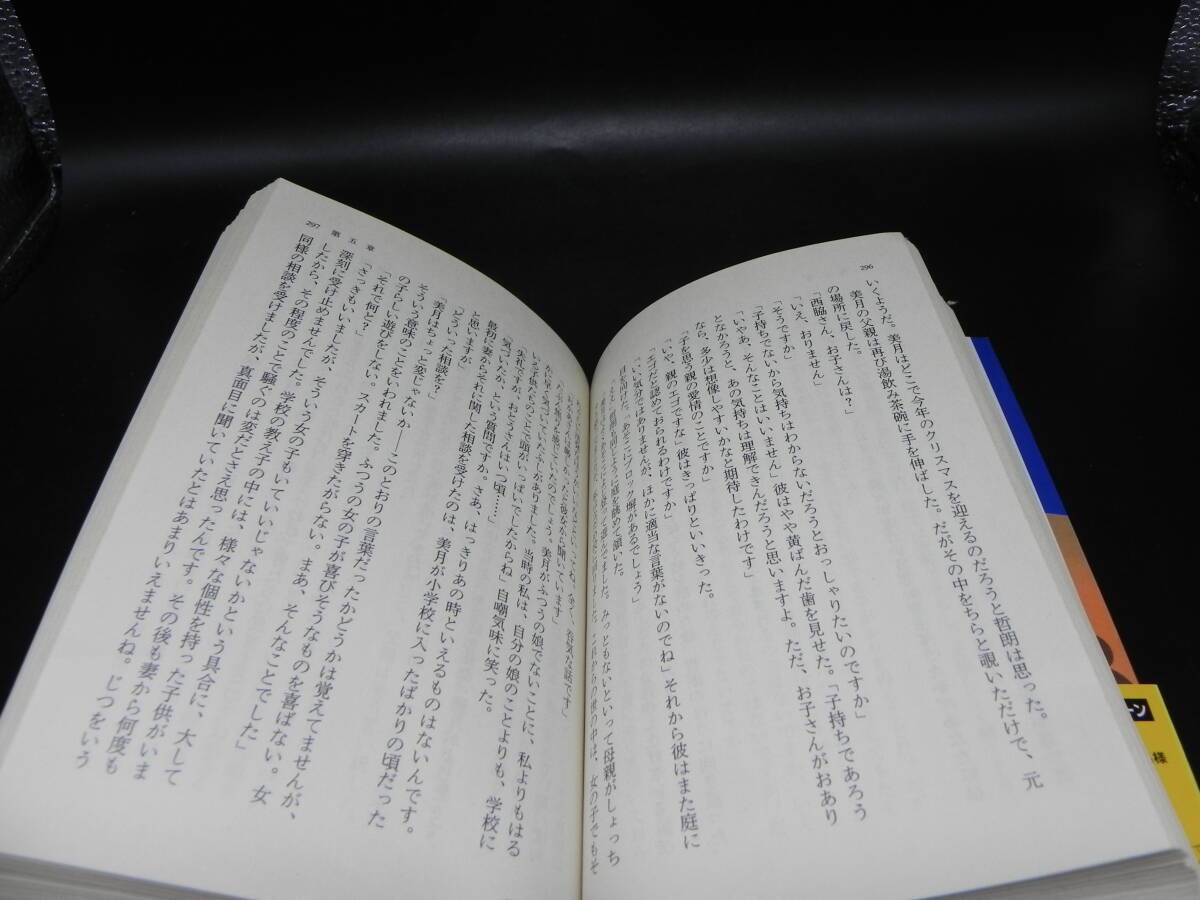 296
いくようだ。美月はどこで今年のクリスマスを迎えるのだろうと哲朗は思った。
美月の父親は再び湯飲み茶碗に手を伸ばした。だがその中をちらと覗いただけで、元
の場所に戻した。
「西脇さん、お子さんは？」
「いえ、おりません」
「そうですか」
「子持ちでないから気持ちはわからないだろうとおっしゃりたいのですか」
「いやあ、そんなことはいいません」彼はやや黄ばんだ歯を見せた。「子持ちであろう
となかろうと、あの気持ちは理解できんだろうと思いますよ。ただ、お子さんがおあり
なら、多少は想像しやすいかなと期待したわけです」
「子を思う親の愛情のことですか」
「いや、親のエゴですな」彼はきっぱりといいきった。
「エゴだと認めておられるわけですか」
「いい気分ではありませんが、ほかに適当な言葉がないのでね」それから彼はまた庭に
目を向けた。「あそこにブロック塀があるでしょう」
みっともないといって母親がしょっち
これからの世の中は、女の子でもそ
297 第五章
呑気な話です」
美月がふつうの娘でないことに、私よりもはる
かに早く気づいていたふしがありました。当時の私は、自分の娘のことよりも、学校に
いる子供たちのことで頭がいっぱいでしたからね」自嘲気味に笑った。
「失礼ですが、おとうさんはいつ頃……」
「気づいたか、という質問ですか。さあ、はっきりあの時といえるものはないんです。
最初に妻からそれに関した相談を受けたのは、美月が小学校に入ったばかりの頃だった
と思いますが」
「どういった相談を？」
「美月はちょっと変じゃないか――このとおりの言葉だったかどうかは覚えてませんが、
そういう意味のことをいわれました。ふつうの女の子が喜びそうなものを喜ばない。女
の子らしい遊びをしない。スカートを穿きたがらない。まあ、そんなことでした」
「それで何と？」
「さっきもいいましたが、そういう女の子もいていいじゃないかという具合に、大して
深刻に受け止めませんでした。学校の教え子の中には、様々な個性を持った子供がいま
したから、その程度のことで騒ぐのは変だとさえ思ったんです。その後も妻から何度も
同様の相談を受けましたが、真面目に聞いていたとはあまりいえませんね。じつをいう
ーン
様